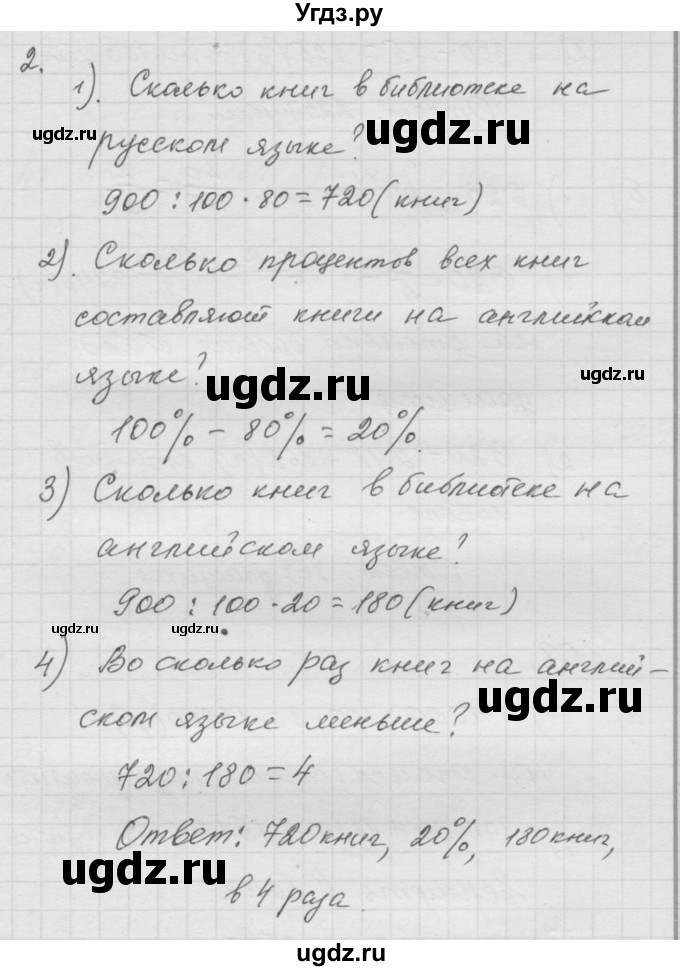 Угдз.ру
2.
1). Сколько книг в библиотеке на
русском языке?
900 : 100 · 80 = 720 (книг)
2). Сколько процентов всех книг
составляют книги на английском
языке?
100% − 80% = 20%.
3) Сколько книг в библиотеке на
английском языке?
900 : 100 · 20 = 180 (книг)
4) Во сколько раз книг на англий-
ском языке меньше?
720 : 180 = 4
Ответ: 720 книг, 20%, 180 книг,
в 4 раза.
ugdz.ru
ugdz.ru
ugdz.ru
ugdz.ru
ugdz.ru
ugdz.ru
ugdz.ru
ugdz.ru
ugdz.ru